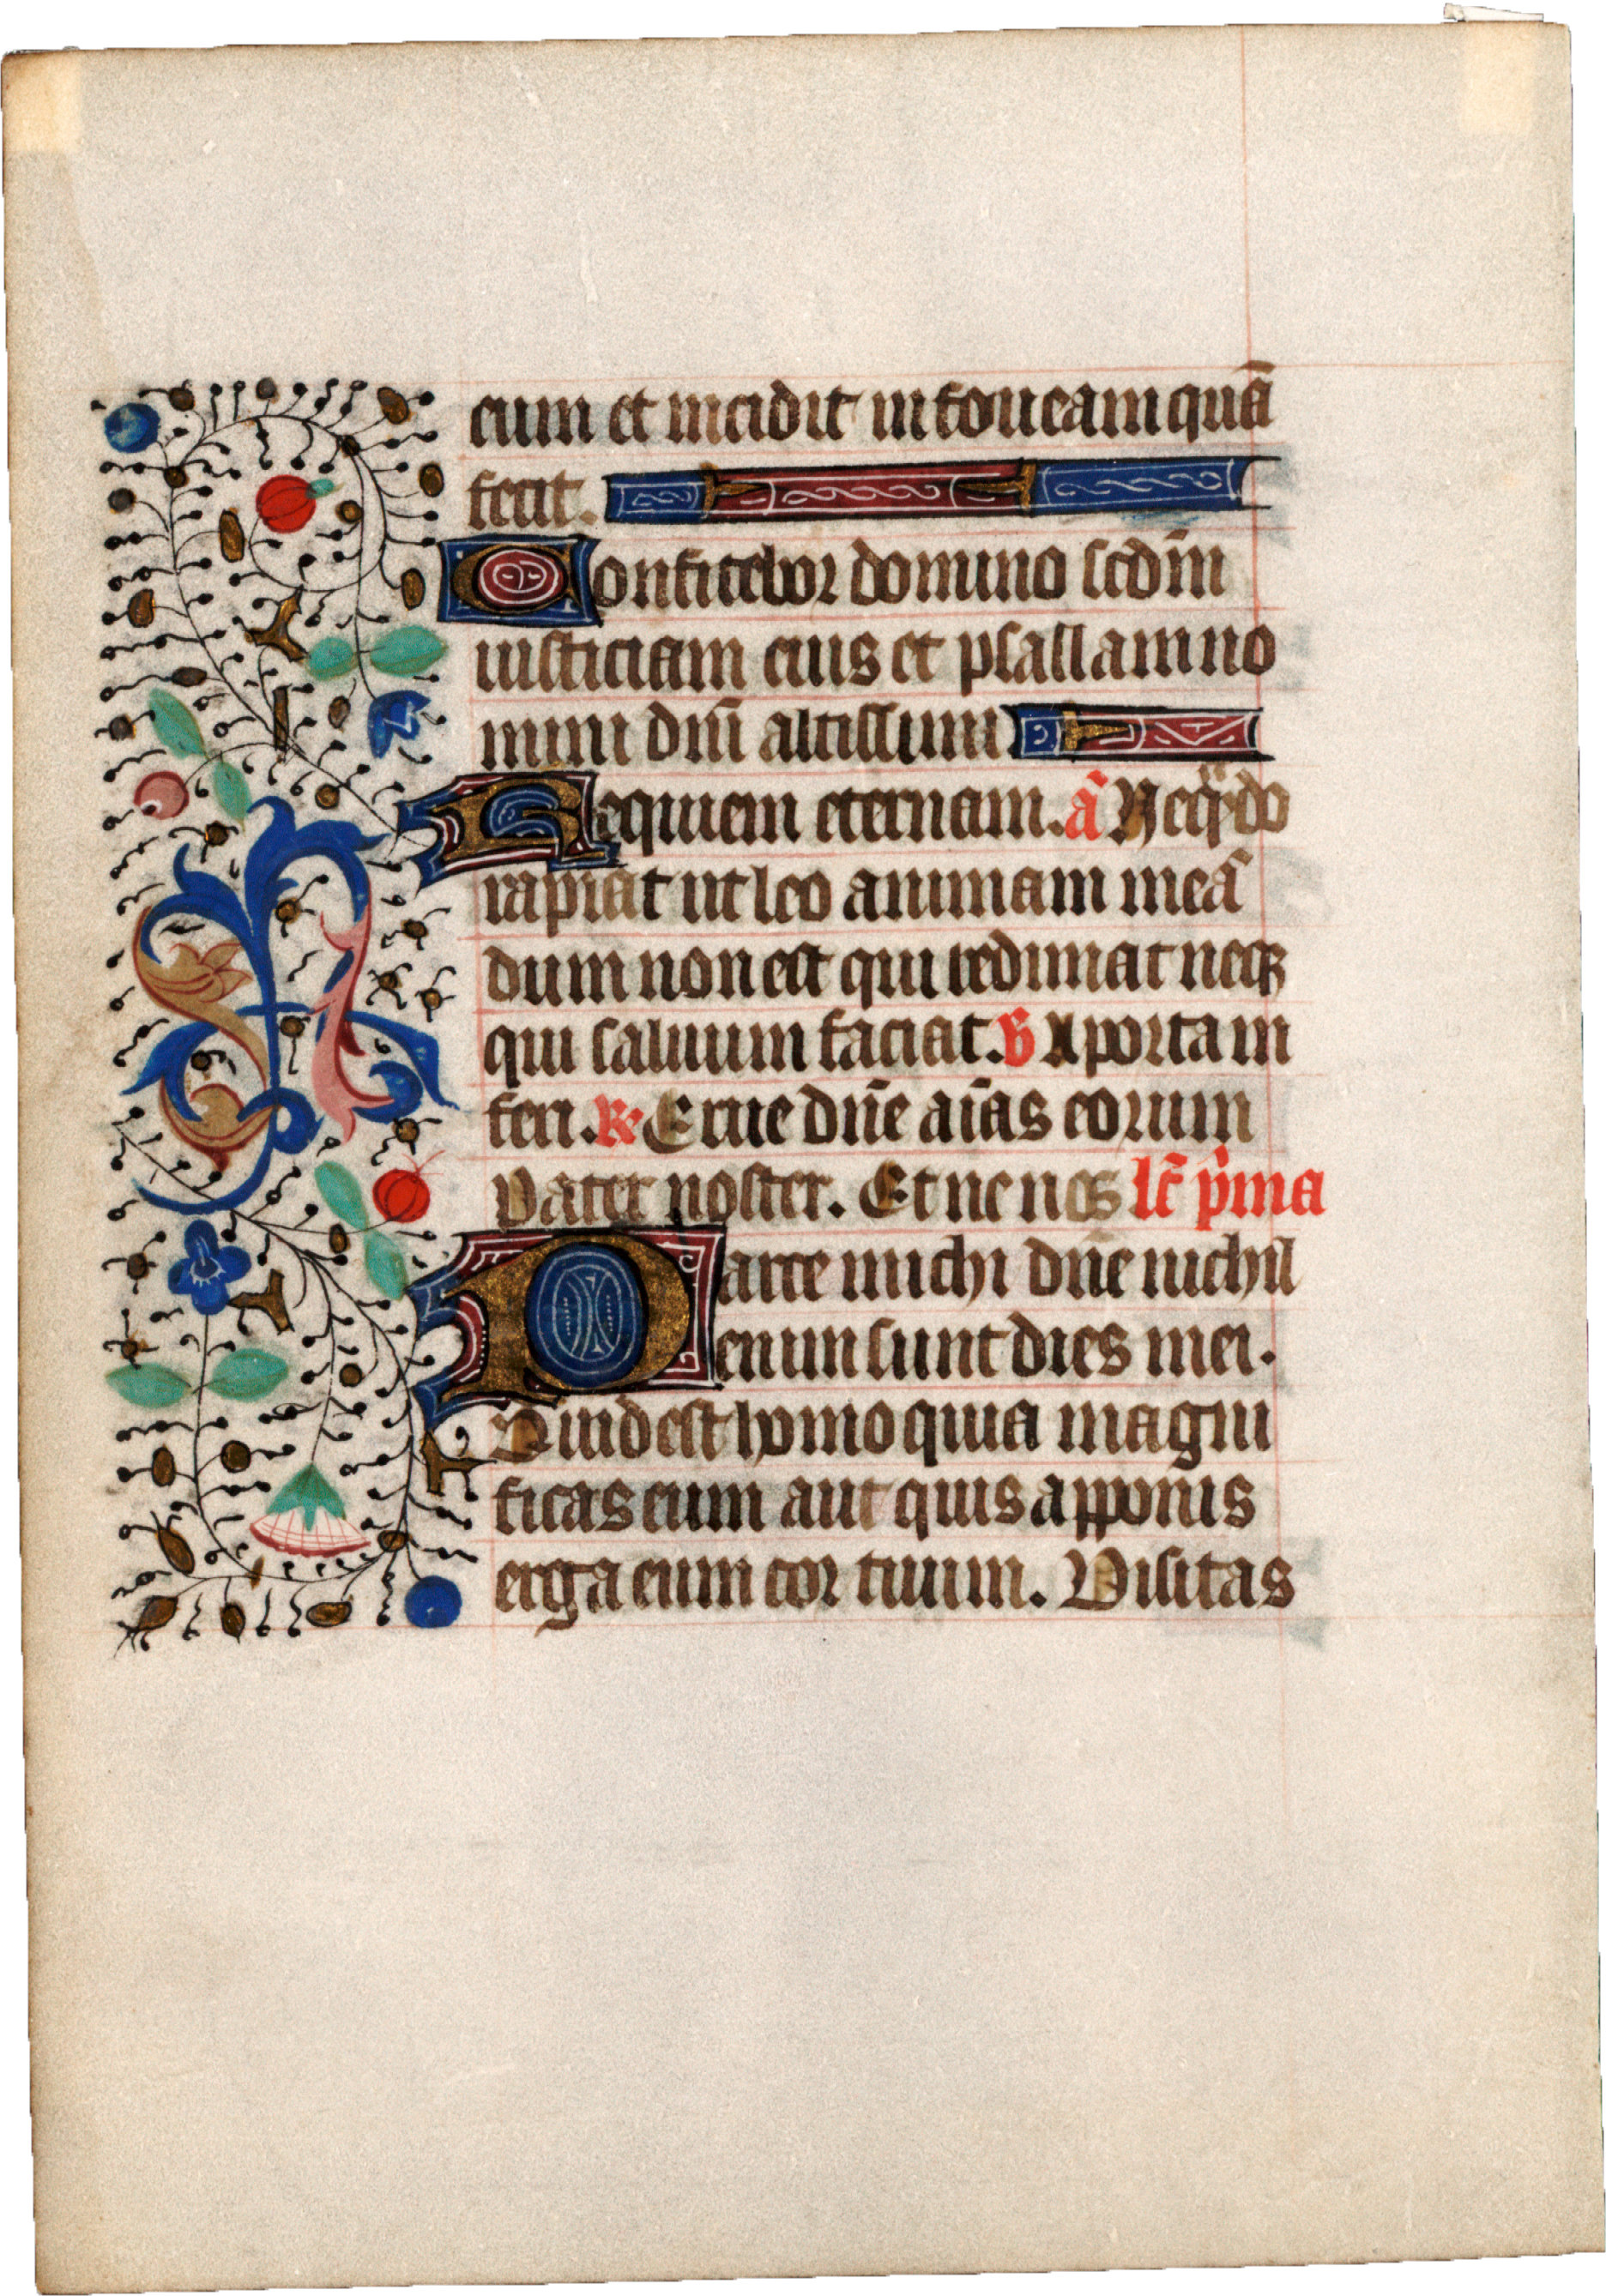 eum et incidit in foueam quā
fecit.
Confitebor domino scdm̄
iusticiam eius et psallam no
mini dn̄i altissimi
Requiem eternam. an̄ Neqn̄do
rapiat ut leo animam meā
dum non est qui redimat neq₃
qui saluum faciat. ℣ A porta in
feri. ℟ Erue dn̄e aīas eorum
Pater noster. Et ne nos lc̄ p̄ma
Parce michi dn̄e nichil
enim sunt dies mei.
Quid est homo quia magni
ficas eum aut quis apponis
erga eum cor tuum. Visitas